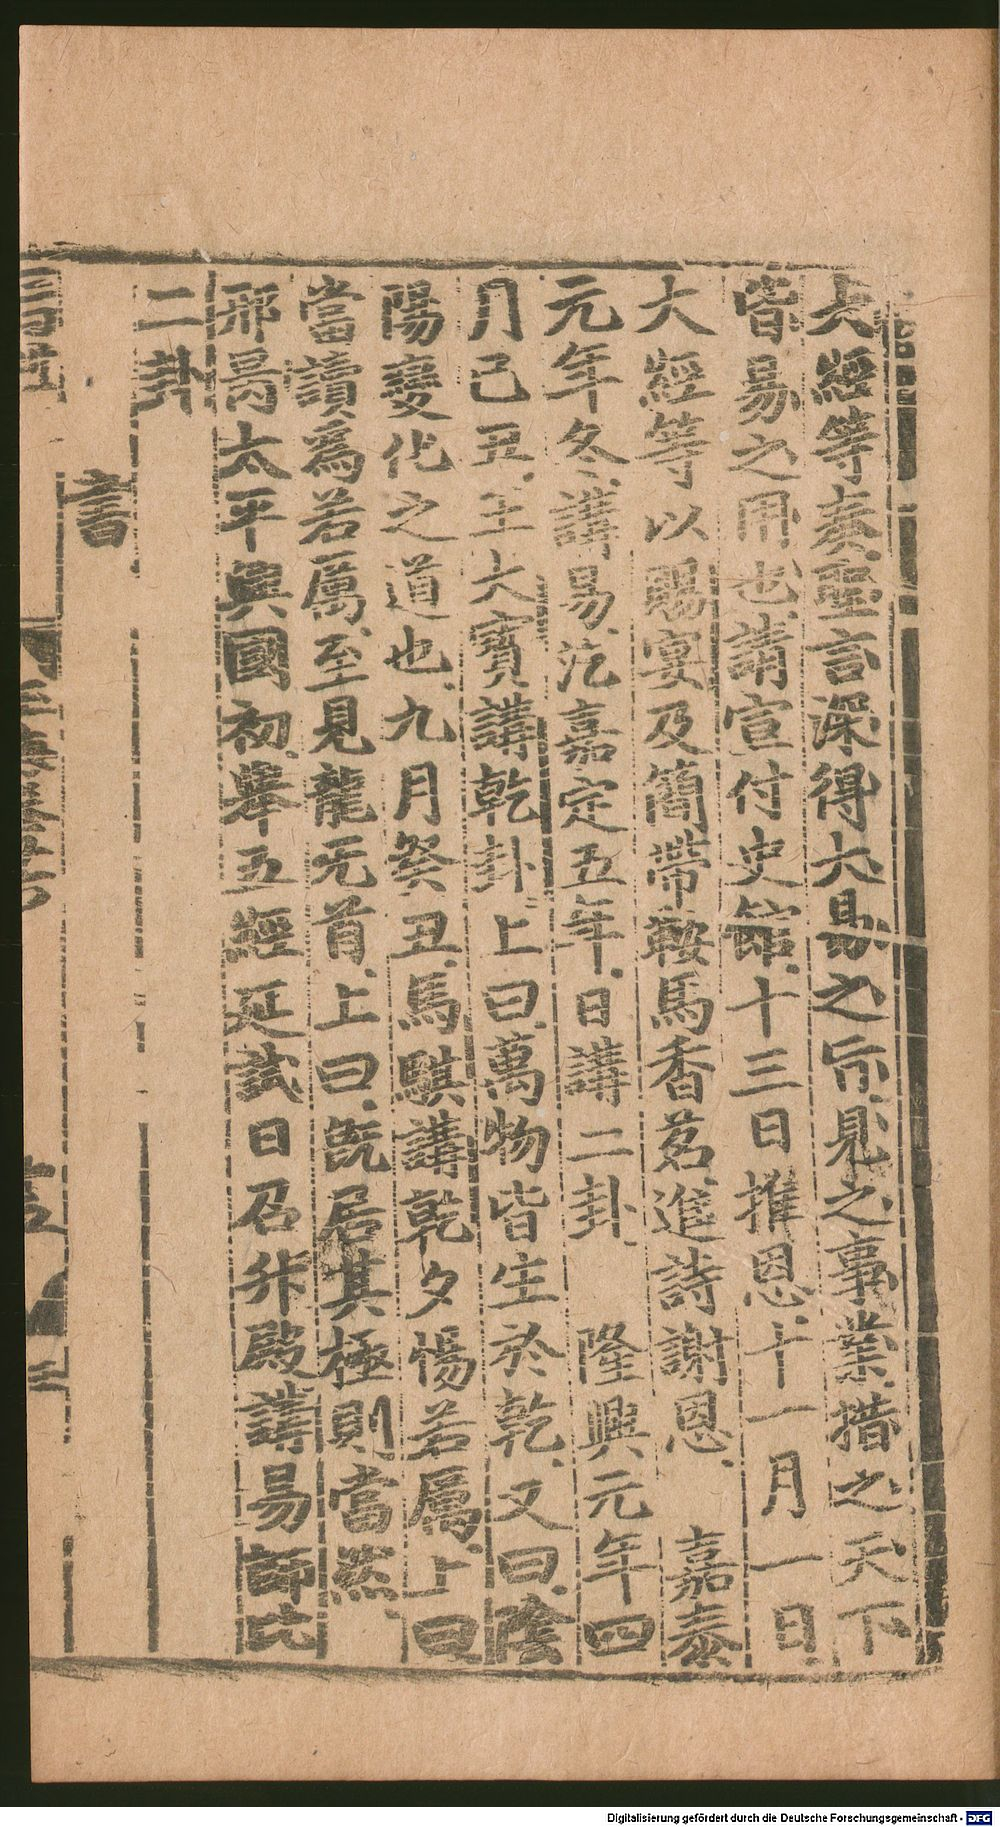 大經等奏聖言深得大易之㫖見之事業措之天下
皆易之用也請宣付史館十三日推恩十一月一日
大經等以賜宴及簡帶鞍馬香茗進詩謝恩 嘉泰
元年冬講易訖嘉定五年日講二卦 隆興元年四
月己丑王大寶講乾卦上曰萬物皆生於乾又曰陰
陽變化之道也九月癸丑馬騏講乾夕惕若厲上曰
當讀爲若厲至見龍无首上曰旣居其極則當然
邢昺太平興國初舉五經延試日召升殿講易師比
二卦
書
Digitalisierung gefördert durch die Deutsche Forschungsgemeinschaft - DFG